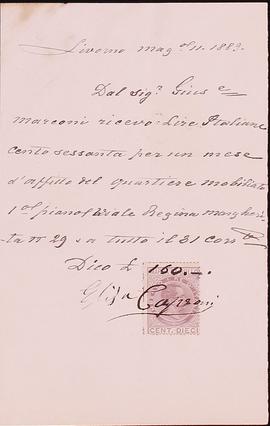 Livorno mag. o 11. 1883.
Dal sig.r Gius e
marconi ricevo Lire Italiane
cento sessanta per un mese
d'affitto del quartiere mobiliato
1° piano Viale Regina margheri
ta n 29 a tutto il 31 corr
Dico £ 160.—.
Caproni
CENT. DIECI